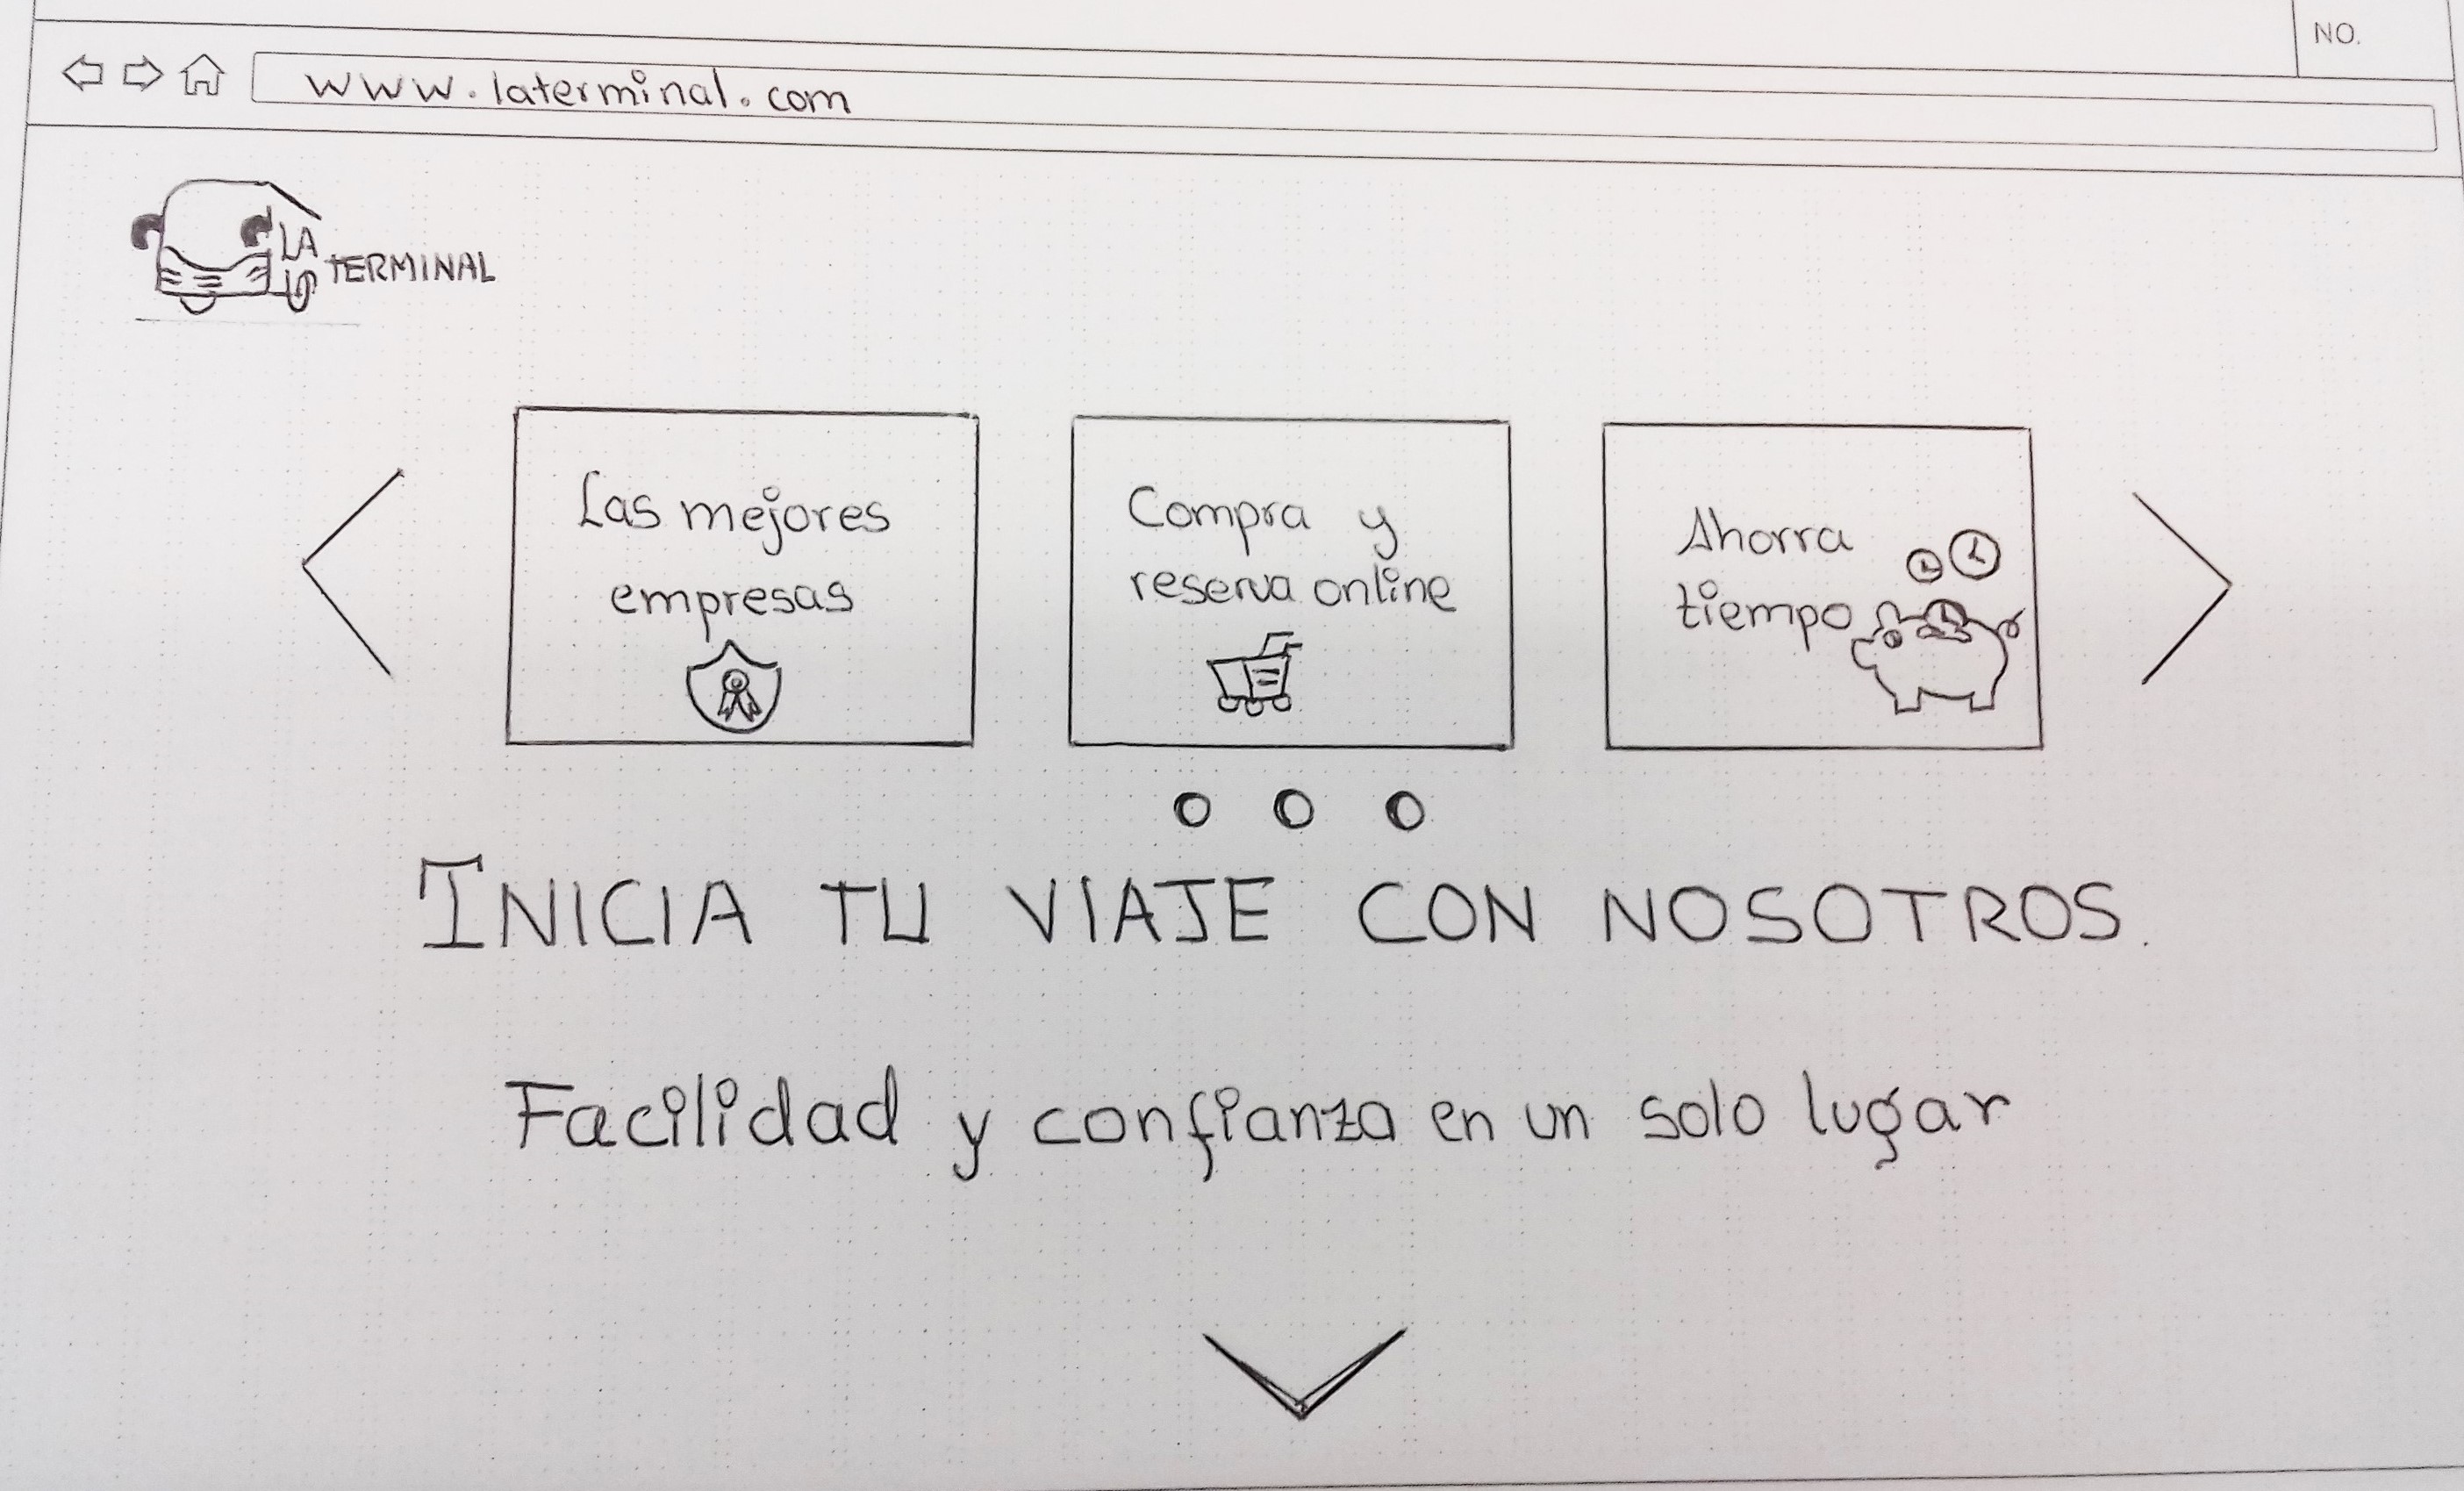 NO.
www.laterminal.com
LA
TERMINAL
Las mejores
empresas
Compra y
reserva online
Ahorra
tiempo
INICIA TU VIAJE CON NOSOTROS.
Facilidad y confianza en un solo lugar